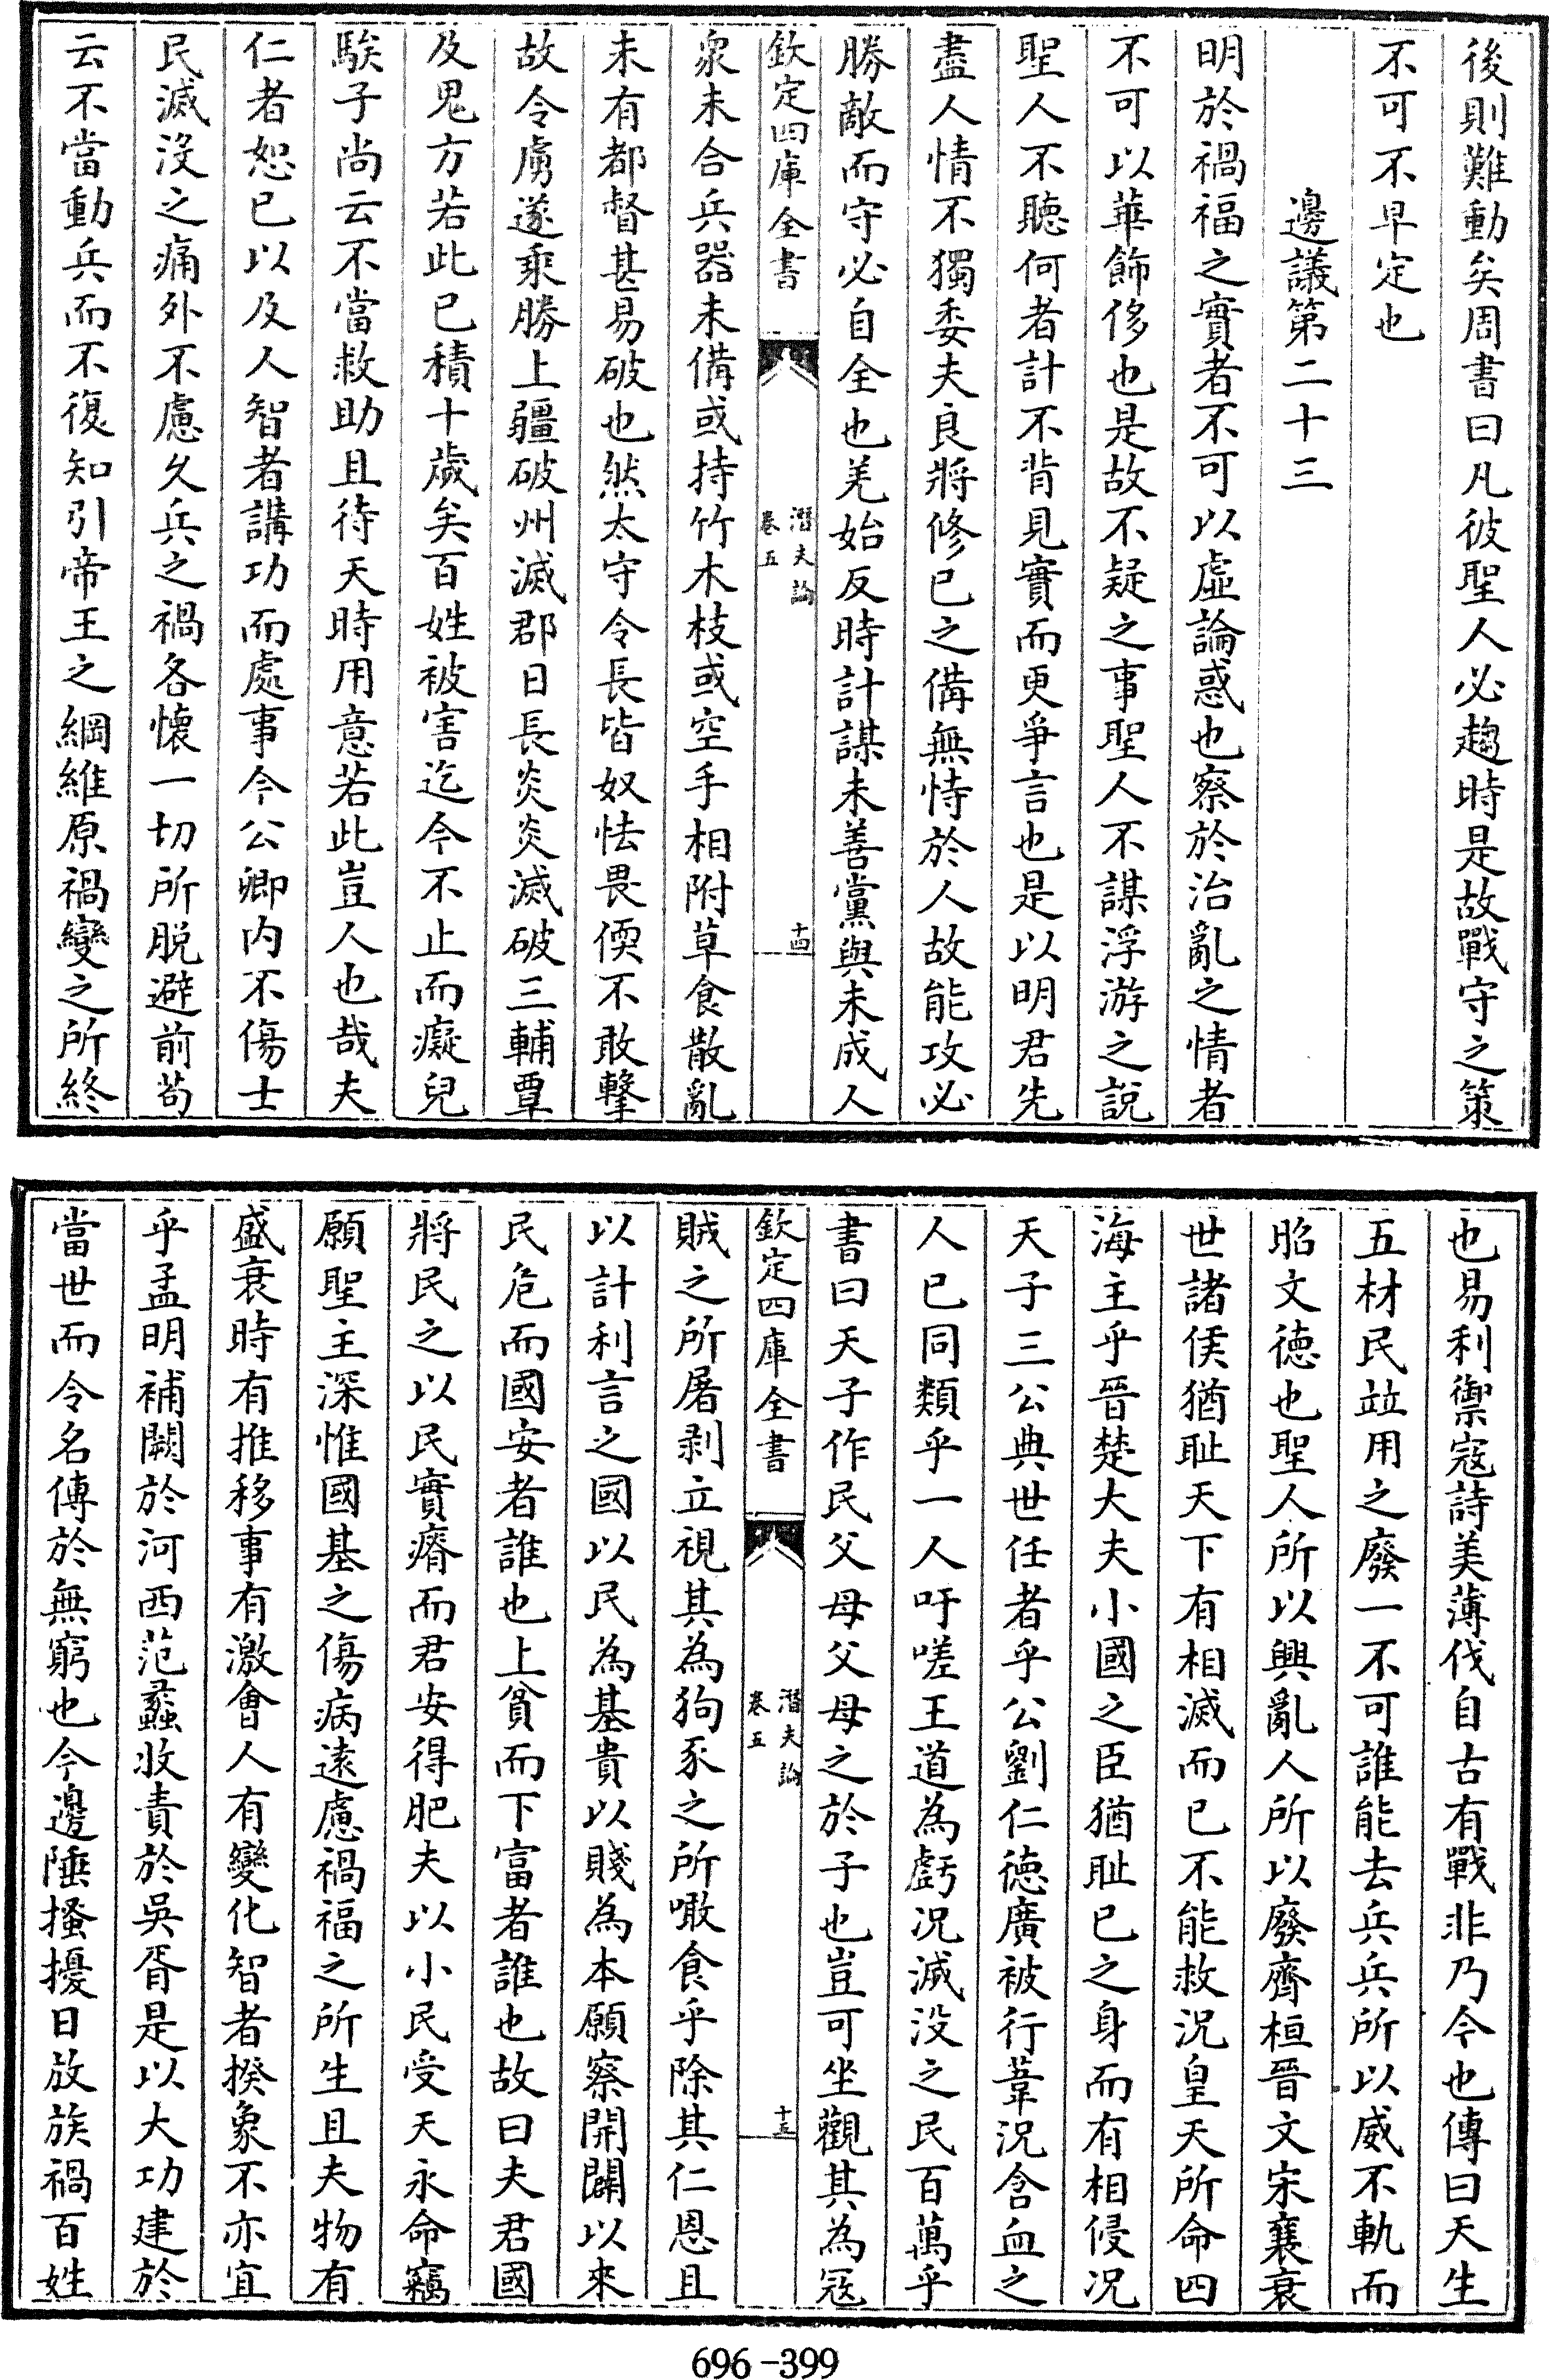 後則難動矣周書曰凡彼聖人必趨時是故戰守之策
不可不早定也
邊議第二十三
明於禍福之實者不可以虛論惑也察於治亂之情者
不可以華飾移也是故不疑之事聖人不謀浮游之說
聖人不聽何者計不背見實而更爭言也是以明君先
盡人情不獨委夫良將修已之備無恃於人故能攻必
勝敵而守必自全也羌始反時計謀未善黨與未成人
欽定四庫全書
潛夫論
卷五
十四
衆未合兵器未備或持竹木枝或空手相附草食散亂
未有都督甚易破也然太守令長皆奴怯畏偄不敢擊
故令虜遂乘勝上疆破州滅郡日長炎炎滅破三輔覃
及鬼方若此已積十歲矣百姓被害迄今不止而癡兒
騃子尚云不當救助且待天時用意若此豈人也哉夫
仁者恕已以及人智者講功而處事今公卿内不傷士
民滅沒之痛外不慮久兵之禍各懷一切所脱避前苟
云不當動兵而不復知引帝王之綱維原禍變之所終
也易利禦寇詩美薄伐自古有戰非乃今也傳曰天生
五材民竝用之廢一不可誰能去兵兵所以威不軌而
昭文德也聖人所以興亂人所以廢齊桓晉文宋襄衰
世諸侯猶耻天下有相滅而已不能救況皇天所命四
海主乎晉楚大夫小國之臣猶耻已之身而有相侵况
天子三公典世任者乎公劉仁德廣被行葦況含血之
人已同類乎一人吁嗟王道為虧况滅没之民百萬乎
書曰天子作民父母父母之於子也豈可坐觀其為寇
欽定四庫全書
潛夫論
卷五
十五
賊之所屠剥立視其為狗豕之所噉食乎除其仁恩且
以計利言之國以民為基貴以賤為本願察開闢以來
民危而國安者誰也上貧而下富者誰也故曰夫君國
將民之以民實瘠而君安得肥夫以小民受天永命竊
願聖主深惟國基之傷病遠慮禍福之所生且夫物有
盛衰時有推移事有激會人有變化智者揆象不亦宜
乎孟明補闕於河西范蠡收責於吳胥是以大功建於
當世而令名傳於無窮也今邊陲搔擾日放族禍百姓
696-399